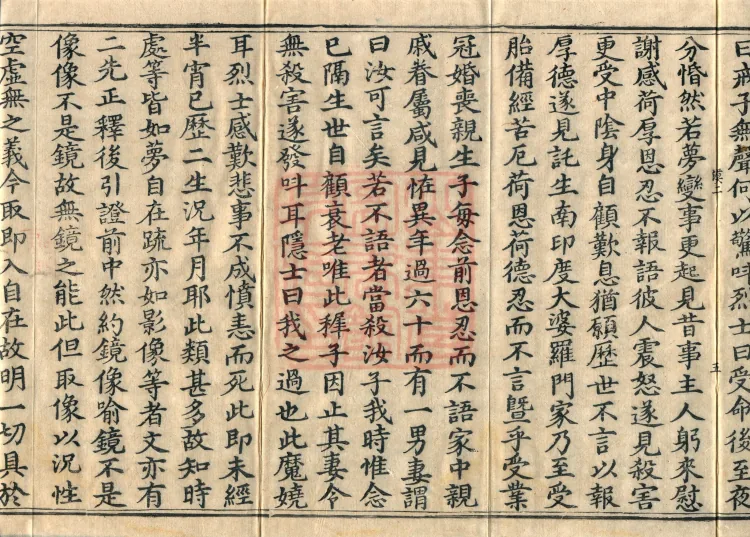 曰戒子無聲何以驚呌烈士曰受命後至夜
分惛然若夢變事更起見昔事主人躬來慰
謝感荷厚恩忍不報語彼人震怒遂見殺害
更受中陰身自顧歎息猶願歷世不言以報
厚德遂見託生南印度大婆羅門家乃至受
胎備經苦厄荷恩荷德忍而不言曁乎受業
冠婚喪親生子每念前恩忍而不語家中親
戚眷屬咸見恠異年過六十而有一男妻謂
曰汝可言矣若不語者當殺汝子我時惟念
已隔生世自顧衰老唯此稺子因止其妻令
無殺害遂發呌耳隱士曰我之過也此魔嬈
耳烈士感歎悲事不成憤恚而死此即未經
半宵已歷二生況年月耶此類甚多故知時
處等皆如夢自在疏亦如影像等者文亦有
二先正釋後引證前中然約鏡像喻鏡不是
像像不是鏡故無鏡之能此但取像以況性
空虛無之義今取即入自在故明一切具於
五